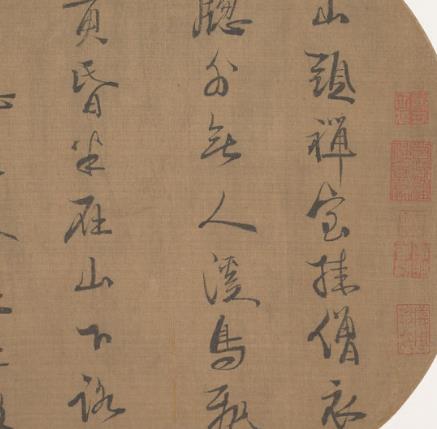 山頭禪室挂僧衣
牕外無人溪鳥飛
黃昏半在山下路